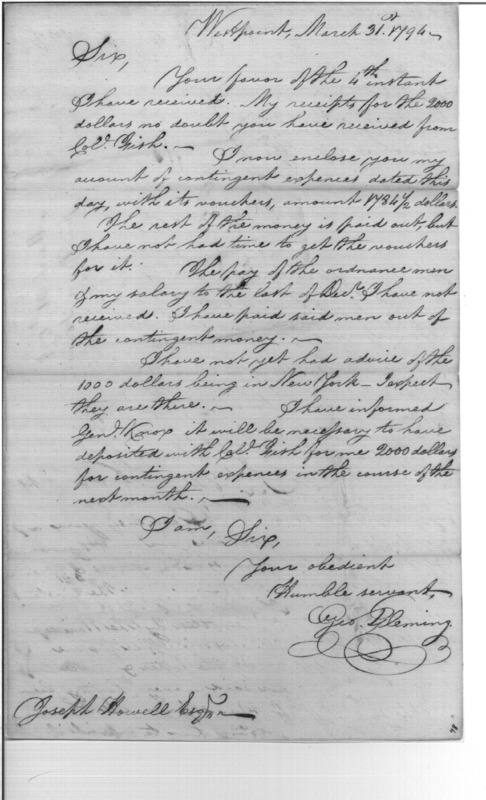 Westpoint, March 31st 1794
Sir,
Your favor of the 4th instant
I have received. My receipts for the 2000
dollars no doubt you have received from
Colo. Fish.
I now enclose you my
acount of contingent expences dated this
day, with its vouchers, amount 1784 1/2 dollars.
The rest of the money is paid out, but
I have not had time to get the vouchers
for it. The pay of the ordnance men
& my salary to the last of Decr. I have not
received. I have paid said men out of
the contingent money.
I have not yet had advice of the
1000 dollars being in New York — I expect
they are there. I have informed
Genl. Knox it will be necessary to have
deposited with Colo. Fish for me 2000 dollars
for contingent expences in the course of the
next month.
I am, Sir,
Your obedient
Humble servant,
Geo. Fleming
Joseph Howell Esqr.